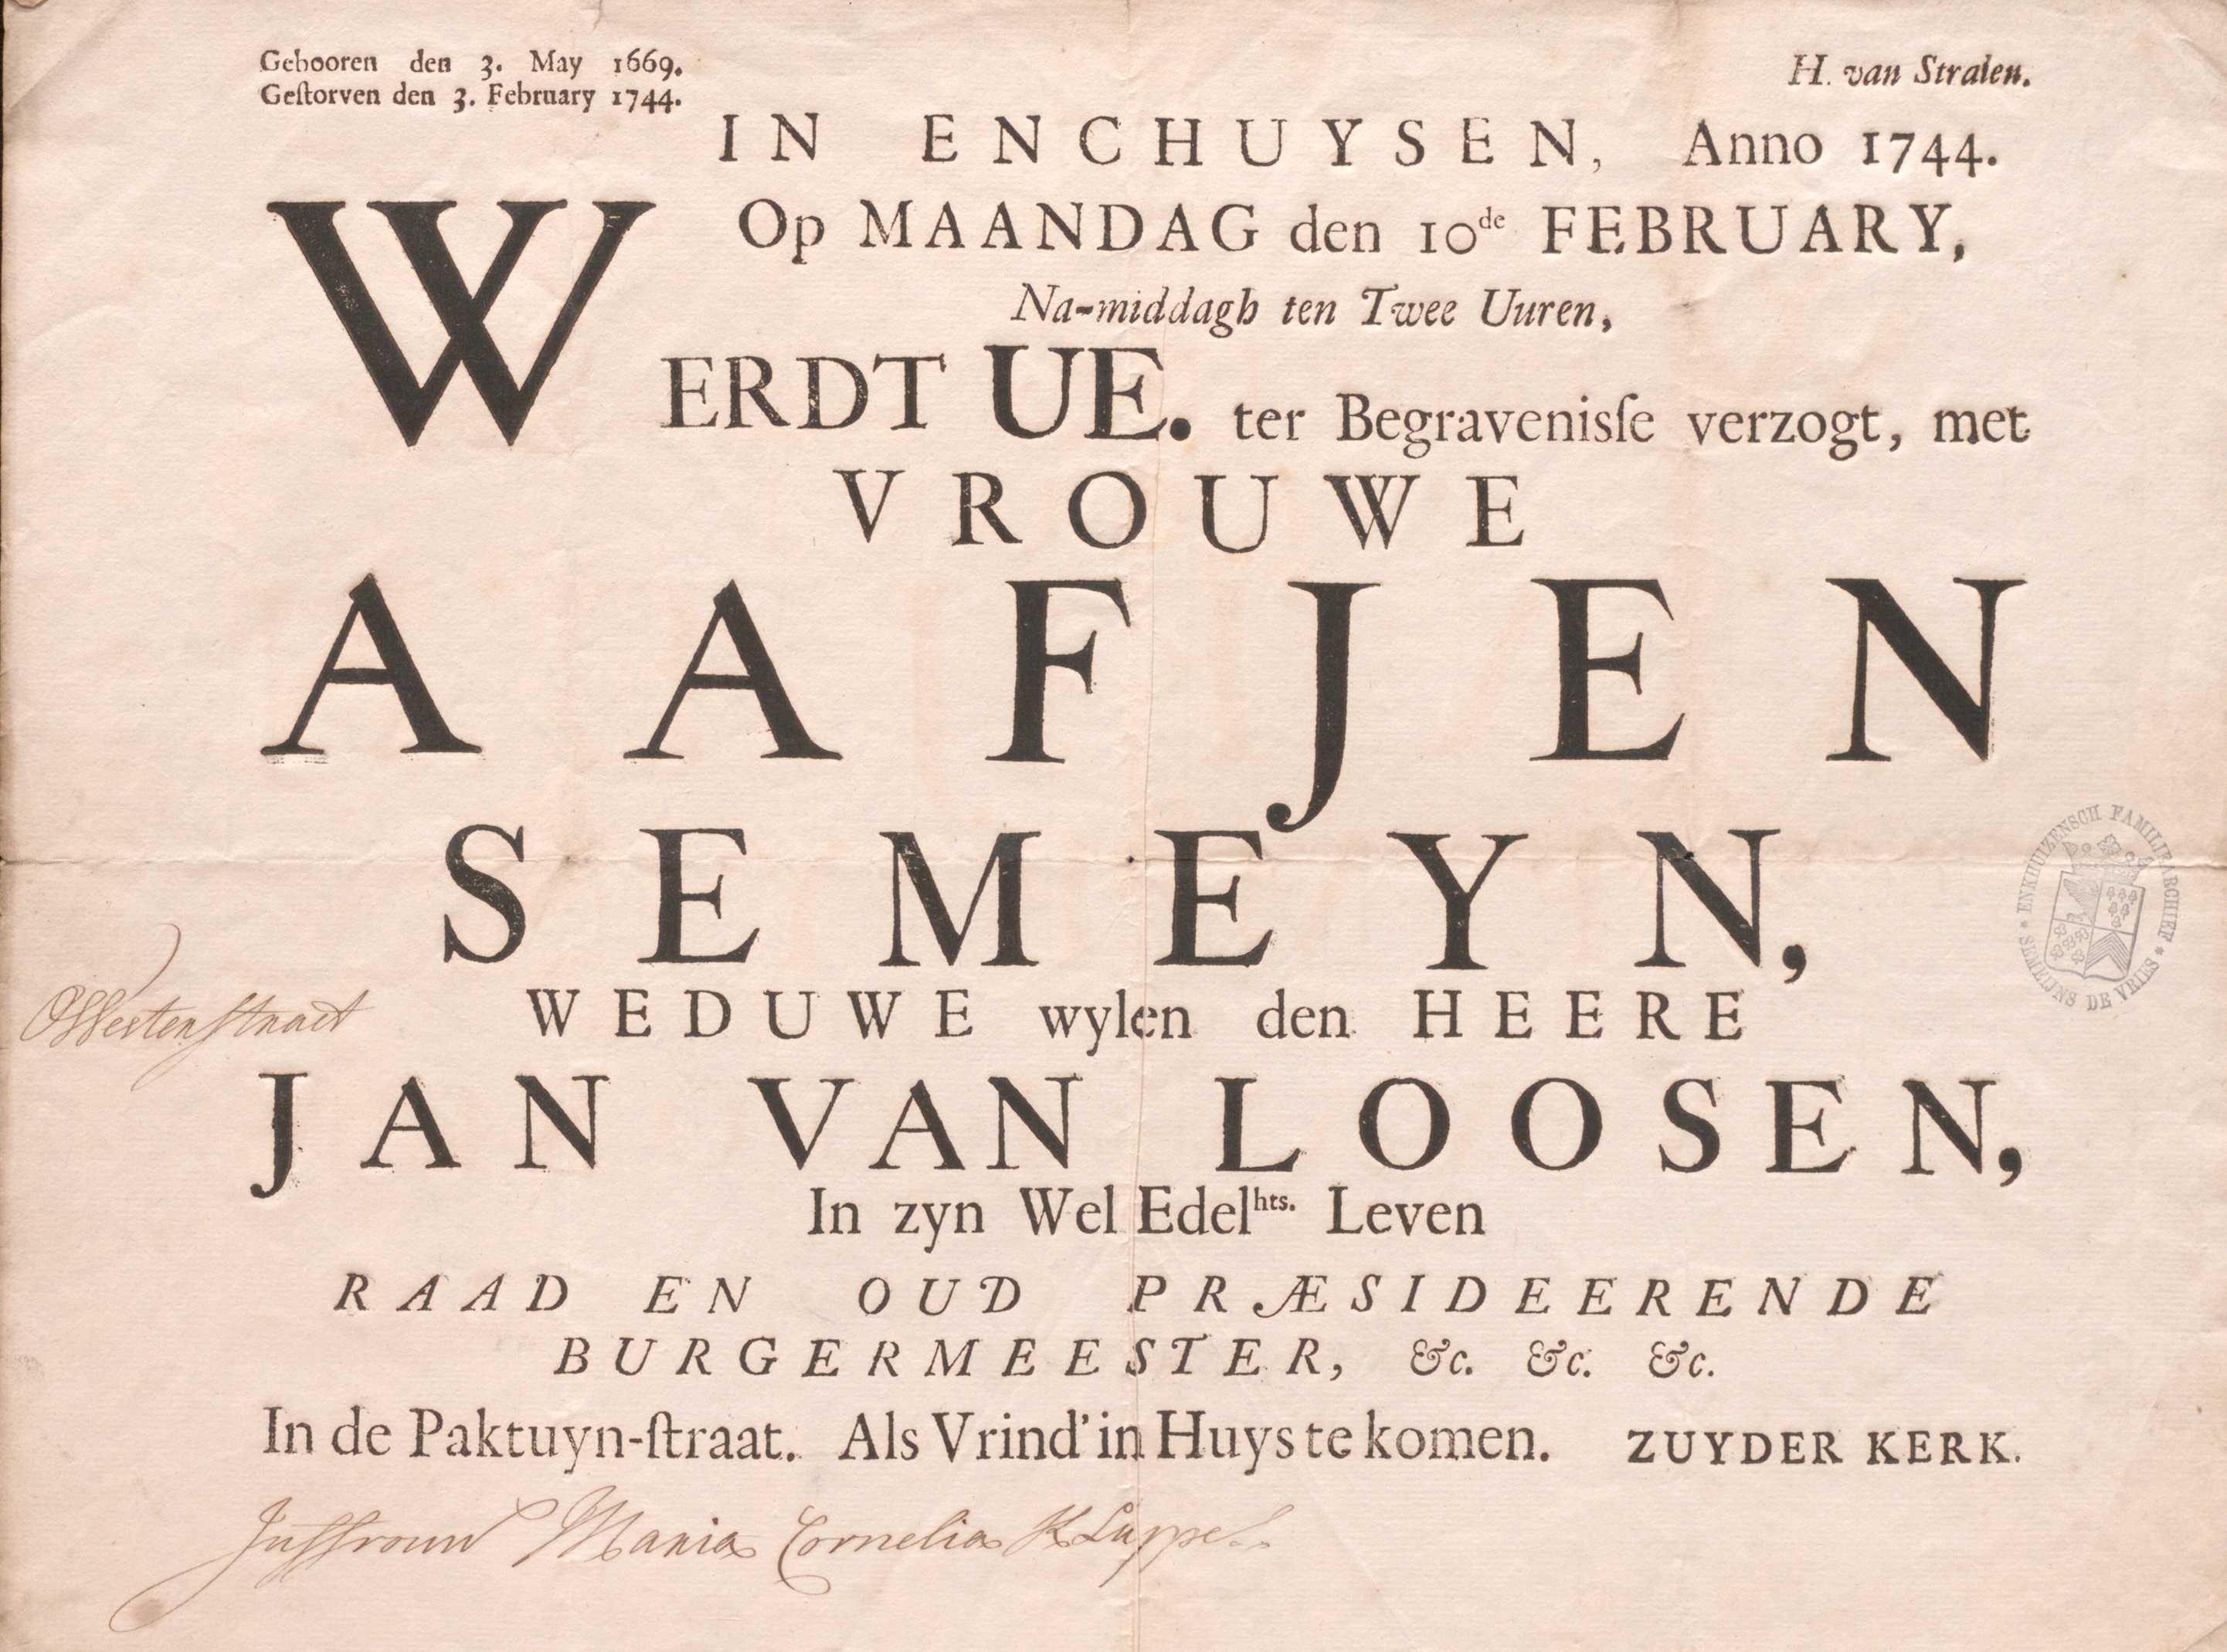 Gebooren den 3. May 1669.
Geſtorven den 3. February 1744.
H. van Stralen.
IN ENCHUYSEN, Anno 1744.
Op MAANDAG den 10de FEBRUARY,
Na-middagh ten Twee Uuren,
WERDT UE. ter Begraveniſſe verzogt, met
VROUWE
AAFJEN
SEMEYN,
WEDUWE wylen den HEERE
JAN VAN LOOSEN,
In zyn Wel Edelhts. Leven
RAAD EN OUD PRÆSIDEERENDE
BURGERMEESTER, &c. &c. &c.
In de Paktuyn-ſtraat. Als Vrind' in Huys te komen. ZUYDER KERK.
Westerstraet
Juffrouw Maria Cornelia Kluppel.
ENKHUIZENSCH FAMILIEARCHIEF * SEMEIJNS DE VRIES *